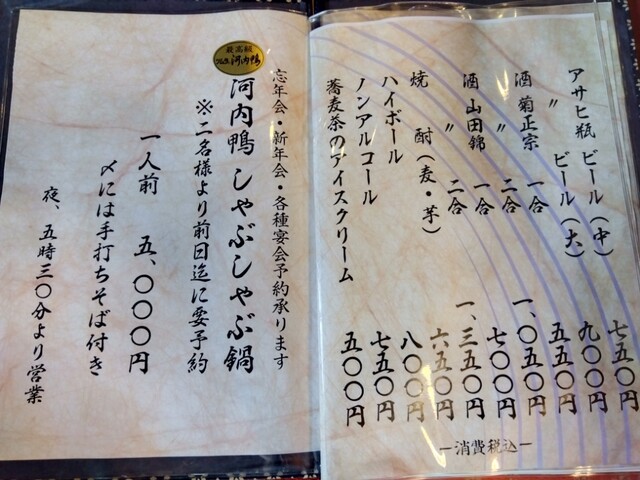 アサヒ瓶 ビール(中) 七五〇円
〃 ビール(大) 九〇〇円
酒 菊正宗 一合 五五〇円
〃 二合 一、〇五〇円
酒 山田錦 一合 七〇〇円
〃 二合 一、三五〇円
焼 酎(麦・芋) 六五〇円
ハイボール 八〇〇円
ノンアルコール 七五〇円
蕎麦茶のアイスクリーム 五〇〇円
―消費税込―
忘年会・新年会・各種宴会予約承ります
最高級
河内鴨
河内鴨しゃぶしゃぶ鍋
※二名様より前日迄に要予約
一人前 五、〇〇〇円
〆には手打ちそば付き
夜、五時三〇分より営業